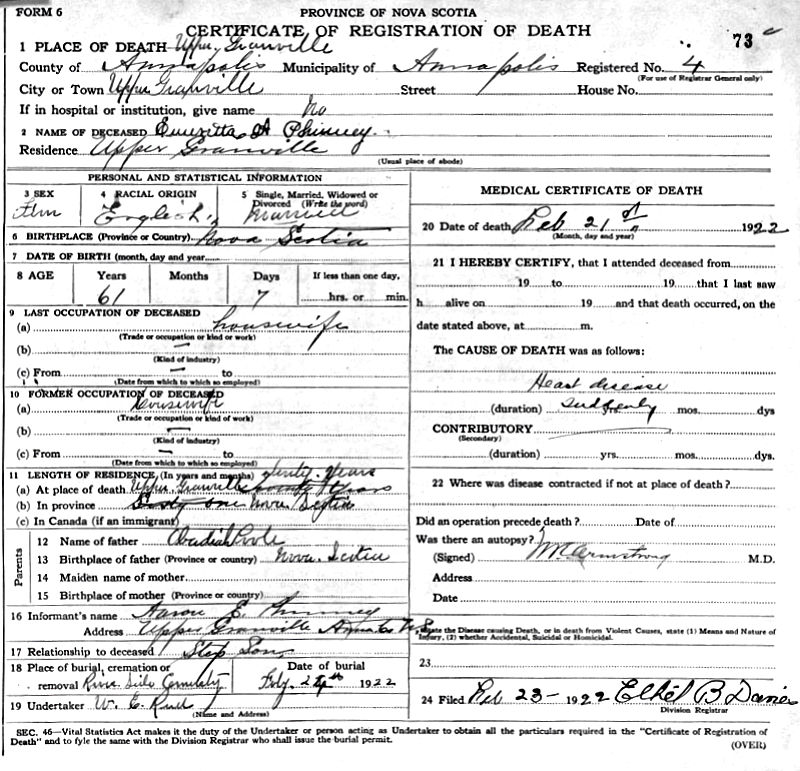 FORM 6
PROVINCE OF NOVA SCOTIA
CERTIFICATE OF REGISTRATION OF DEATH
73
1 PLACE OF DEATH Upper Granville
County of Annapolis Municipality of Annapolis Registered No. 4
(For use of Registrar General only)
City or Town Upper Granville Street House No.
If in hospital or institution, give name No
2 NAME OF DECEASED A Phinney
Residence Upper Granville
(Usual place of abode)
PERSONAL AND STATISTICAL INFORMATION
3 SEX Fem
4 RACIAL ORIGIN English
5 Single, Married, Widowed or Divorced (Write the word) Married
6 BIRTHPLACE (Province or Country) Nova Scotia
7 DATE OF BIRTH (month, day and year)
8 AGE Years Months Days If less than one day,
61 7 hrs. or min.
9 LAST OCCUPATION OF DECEASED
(a) housewife
(Trade or occupation or kind or work)
(b) —
(Kind of industry)
(c) From — to
(Date from which to which so employed)
10 FORMER OCCUPATION OF DECEASED
(a) housewife
(Trade or occupation or kind of work)
(b) —
(Kind of industry)
(c) From — to
(Date from which to which so employed)
11 LENGTH OF RESIDENCE (In years and months) Years
(a) At place of death Upper Granville
(b) In province Sixty one Nova Scotia
(c) In Canada (if an immigrant)
Parents
12 Name of father Obadiah Poole
13 Birthplace of father (Province or country) Nova Scotia
14 Maiden name of mother
15 Birthplace of mother (Province or country)
16 Informant's name Aaron E. Phinney
Address Upper Granville Anna Co N.S.
17 Relationship to deceased Step Son
18 Place of burial, cremation or removal River Side Cemetery
Date of burial 1922
19 Undertaker W. E.
(Name and Address)
MEDICAL CERTIFICATE OF DEATH
20 Date of death Feb 21st 1922
(Month, day and year)
21 I HEREBY CERTIFY, that I attended deceased from
19 to 19 that I last saw
h alive on 19 and that death occurred, on the
date stated above, at m.
The CAUSE OF DEATH was as follows:
Heart disease
(duration) Suddenly yrs. mos. dys
CONTRIBUTORY
(Secondary)
(duration) yrs. mos. dys.
22 Where was disease contracted if not at place of death?
Did an operation precede death? Date of
Was there an autopsy?
(Signed) Armstrong M.D.
Address
Date
State the Disease causing Death, or in death from Violent Causes, state (1) Means and Nature of
Injury, (2) whether Accidental, Suicidal or Homicidal.
23
24 Filed Feb 23- 1922 Ethel B
Division Registrar
SEC. 46—Vital Statistics Act makes it the duty of the Undertaker or person acting as Undertaker to obtain all the particulars required in the "Certificate of Registration of
Death" and to fyle the same with the Division Registrar who shall issue the burial permit.
(OVER)